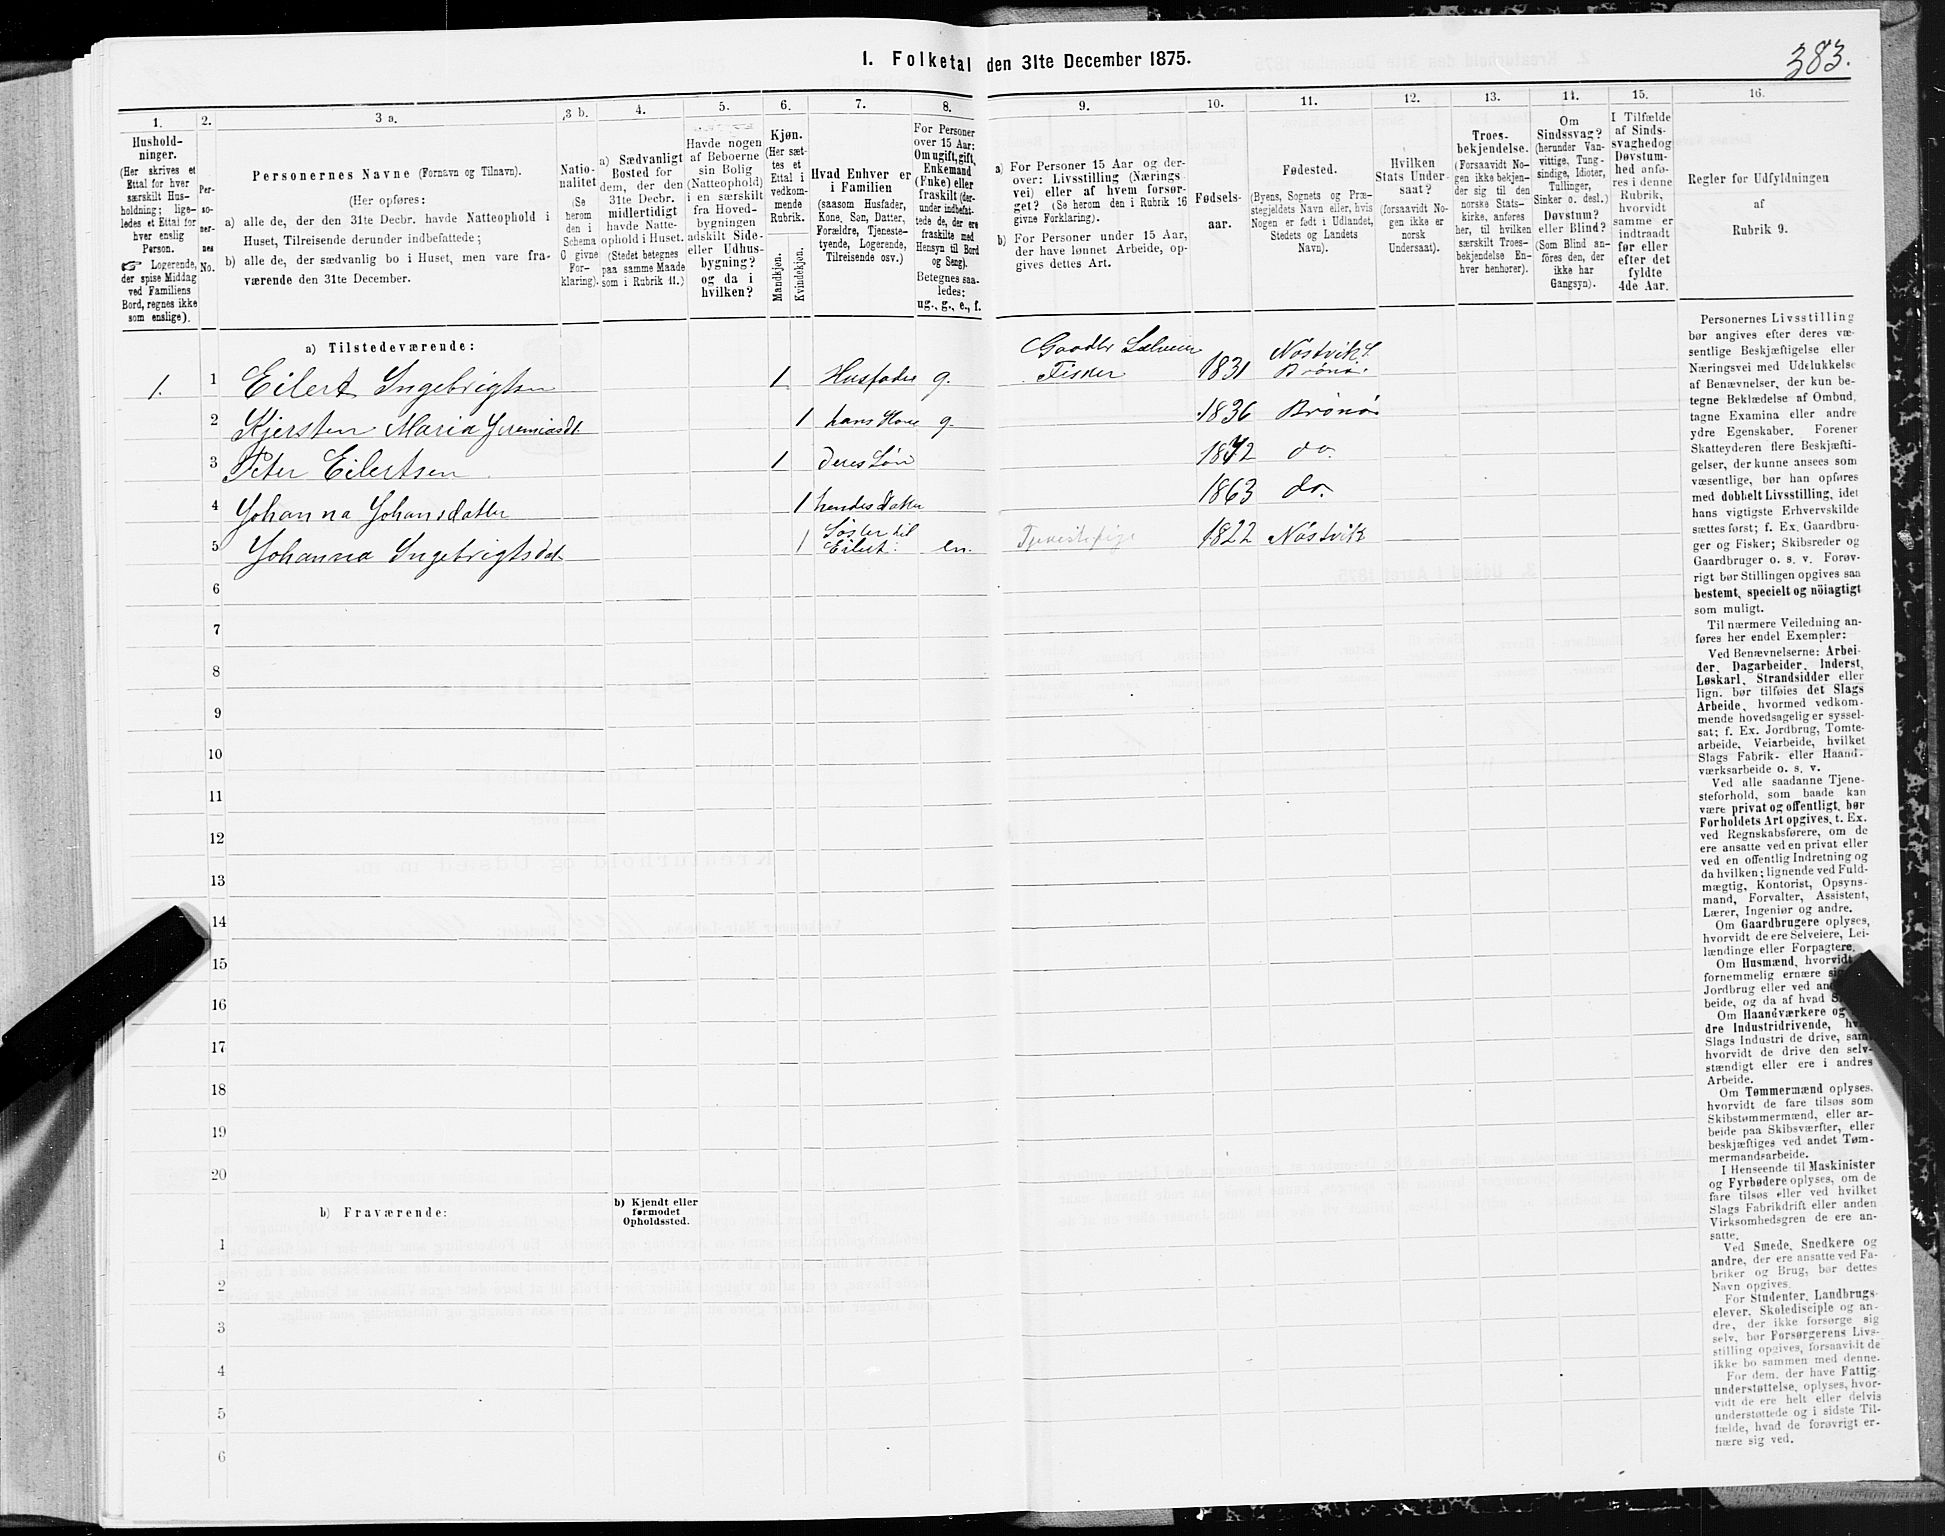 383.
1. Folketal den 31te December 1875.
1. 2. 3 a. 3 b. 4. 5. 6. 7. 8. 9. 10. 11. 12. 13. 14. 15. 16.
Hushold-
ninger.
(Her skrives et
Ettal for hver
særskilt Hus-
holdning; lige-
ledes et Ettal for
hver enslig
Person.
Logerende,
der spise Middag
ved Familiens
Bord, regnes ikke
som enslige).
Per-
so-
ner-
nes
No.
Personernes Navne (Fornavn og Tilnavn).
(Her opføres:
a) alle de, der den 31te Decbr. havde Natteophold i
Huset, Tilreisende derunder indbefattede;
b) alle de, der sædvanlig bo i Huset, men vare fra-
værende den 31te December.
Natio-
nalitet
(Se
herom
den i
Schema
C givne
For-
klaring).
a) Sædvanligt
Bosted for
dem, der den
31te Decbr.
midlertidigt
havde Natte-
ophold i Huset.
(Stedet betegnes
paa samme Maade
som i Rubrik 11.)
Havde nogen
af Beboerne
sin Bolig
(Natteophold)
i en særskilt
fra Hoved-
bygningen
adskilt Side-
eller Udhus-
bygning?
og da i
hvilken?
Kjøn.
(Her sæt-
tes et
Ettal i
vedkom-
mende
Rubrik.
Mandkjøn.
Kvindekjøn.
Hvad Enhver er
i Familien
(saasom Husfader,
Kone, Søn, Datter,
Forældre, Tjeneste-
tyende, Logerende,
Tilreisende osv.)
For Personer
over 15 Aar:
Om ugift, gift,
Enkemand
(Enke) eller
fraskilt (der-
under indbefat-
tede de, der ere
fraskilte med
Hensyn til Bord
og Seng).
Betegnes saa-
ledes:
ug., g., e., f.
a) For Personer 15 Aar og der-
over: Livsstilling (Nærings-
vei) eller af hvem forsør-
get? (Se herom den i Rubrik 16
givne Forklaring).
b) For Personer under 15 Aar,
der have lønnet Arbeide, op-
gives dettes Art.
Fødsels-
aar.
Fødested.
(Byens, Sognets og Præ-
stegjeldets Navn eller, hvis
Nogen er født i Udlandet,
Stedets og Landets
Navn).
Hvilken
Stats Under-
saat?
(forsaavidt No-
gen ikke er
norsk
Undersaat).
Troes-
bekjendelse.
(Forsaavidt No-
gen ikke bekjen-
der sig til den
norske Stats-
kirke, anføres
her, til hvilken
særskilt Troes-
bekjendelse En-
hver henhører).
Om
Sindssvag?
(herunder Van-
vittige, Tung-
sindige, Idioter,
Tullinger,
Sinker o. desl.)
Døvstum?
eller Blind?
(Som Blind an-
føres den, der
ikke har
Gangsyn).
I Tilfælde
af Sinds-
svaghedog
Døvstum-
hed anfø-
res i denne
Rubrik,
hvorvidt
samme er
indtraadt
før eller
efter det
fyldte
4de Aar.
Regler før Udfyldningen
af
Rubrik 9.
a) Tilstedeværende:
1. 1 Eilert Ingebrigtsen 1 Husfader g. Gaardbr Selveier Fisker 1831 Nøstvik S. Brønø.
2 Kjersten Maria Jeremiasdt 1 hans Kone g. 1836 Brønø
3 Peter Eilertsen 1 deres Søn 1872 do.
4 Johanna Johansdatter 1 hendes Datter 1863 do.
5 Johanna Ingebrigtsdat 1 Søster til Eilert. en. Tjenestepige 1822 Nøstvik
6
7
8
9
10
11
12
13
14
15
16
17
18
19
20
b) Fraværende:
b) Kjendt eller
formodet
Opholdssted.
1
2
3
4
5
6
Personernes Livsstilling
bør angives efter deres væ-
sentlige Beskjæftigelse eller
Næringsvei med Udelukkelse
af Benævnelser, der kun be-
tegne Beklædelse af Ombud,
tagne Examina eller andre
ydre Egenskaber. Forener
Skatteyderen flere Beskjæfti-
gelser, der kunne ansees som
væsentlige, bør han opføres
med dobbelt Livsstilling, idet
hans vigtigste Erhvervskilde
sættes først; f. Ex. Gaardbru-
ger og Fisker; Skibsreder og
Gaardbruger o. s. v. Forøv-
rigt bør Stillingen opgives saa
bestemt, specielt og nöiagtigt
som muligt.
Til nærmere Veiledning an-
føres her endel Exempler:
Ved Benævnelserne: Arbei-
der, Dagarbeider, Inderst,
Løskarl, Strandsidder eller
lign. bør tilføies det Slags
Arbeide, hvormed vedkom-
mende hovedsagelig er syssel-
sat; f. Ex. Jordbrug, Tomte-
arbeide, Veiarbeide, hvilket
Slags Fabrik- eller Haand-
værksarbeide o. s. v.
Ved alle saadanne Tjene-
steforhold, som baade kan
være privat og offentligt, bør
Forholdets Art opgives, t. Ex.
ved Regnskabsførere, om de
ere ansatte ved en privat eller
ved en offentlig Indretning og
da hvilken; lignende ved Fuld-
mægtig, Kontorist, Opsyns-
mand, Forvalter, Assistent,
Lærer, Ingeniør og andre.
Om Gaardbrugere oplyses,
hvorvidt de ere Selveiere, Lei-
lændinge eller Forpagtere.
Om Husmænd, hvorvidt
fornemmelig ernære
Jordbrug eller ved an
beide, og da af hvad
Om Haandværkere og
dre Industridrivende,
Slags Industri de drive, samt
hvorvidt de drive den selv-
stændigt eller ere i andres
Arbeide.
Om Tømmermænd oplyses,
hvorvidt de fare tilsøs som
Skibstømmermænd, eller ar-
beide paa Skibsværfter, eller
beskjæftiges ved andet Tøm-
mermandsarbeide.
I Henseende til Maskinister
og Fyrbødere oplyses, om de
fare tilsøs eller ved hvilket
Slags Fabrikdrift eller anden
Virksomhedsgren de ere an-
satte.
Ved Smede, Snedkere og
andre, der ere ansatte ved Fa-
briker og Brug, bør dettes
Navn opgives.
For Studenter, Landbrugs-
elever, Skoledisciple og an-
dre, der ikke forsørge sig
selv, bør Forsørgerens Livs-
stilling opgives, forsaavidt de
ikke bo sammen med denne.
For dem, der have Fattig-
understøttelse, oplyses, hvor-
vidt de ere helt eller delvis
understøttede og i sidste Til-
fælde, hvad de forøvrigt er-
nære sig ved.